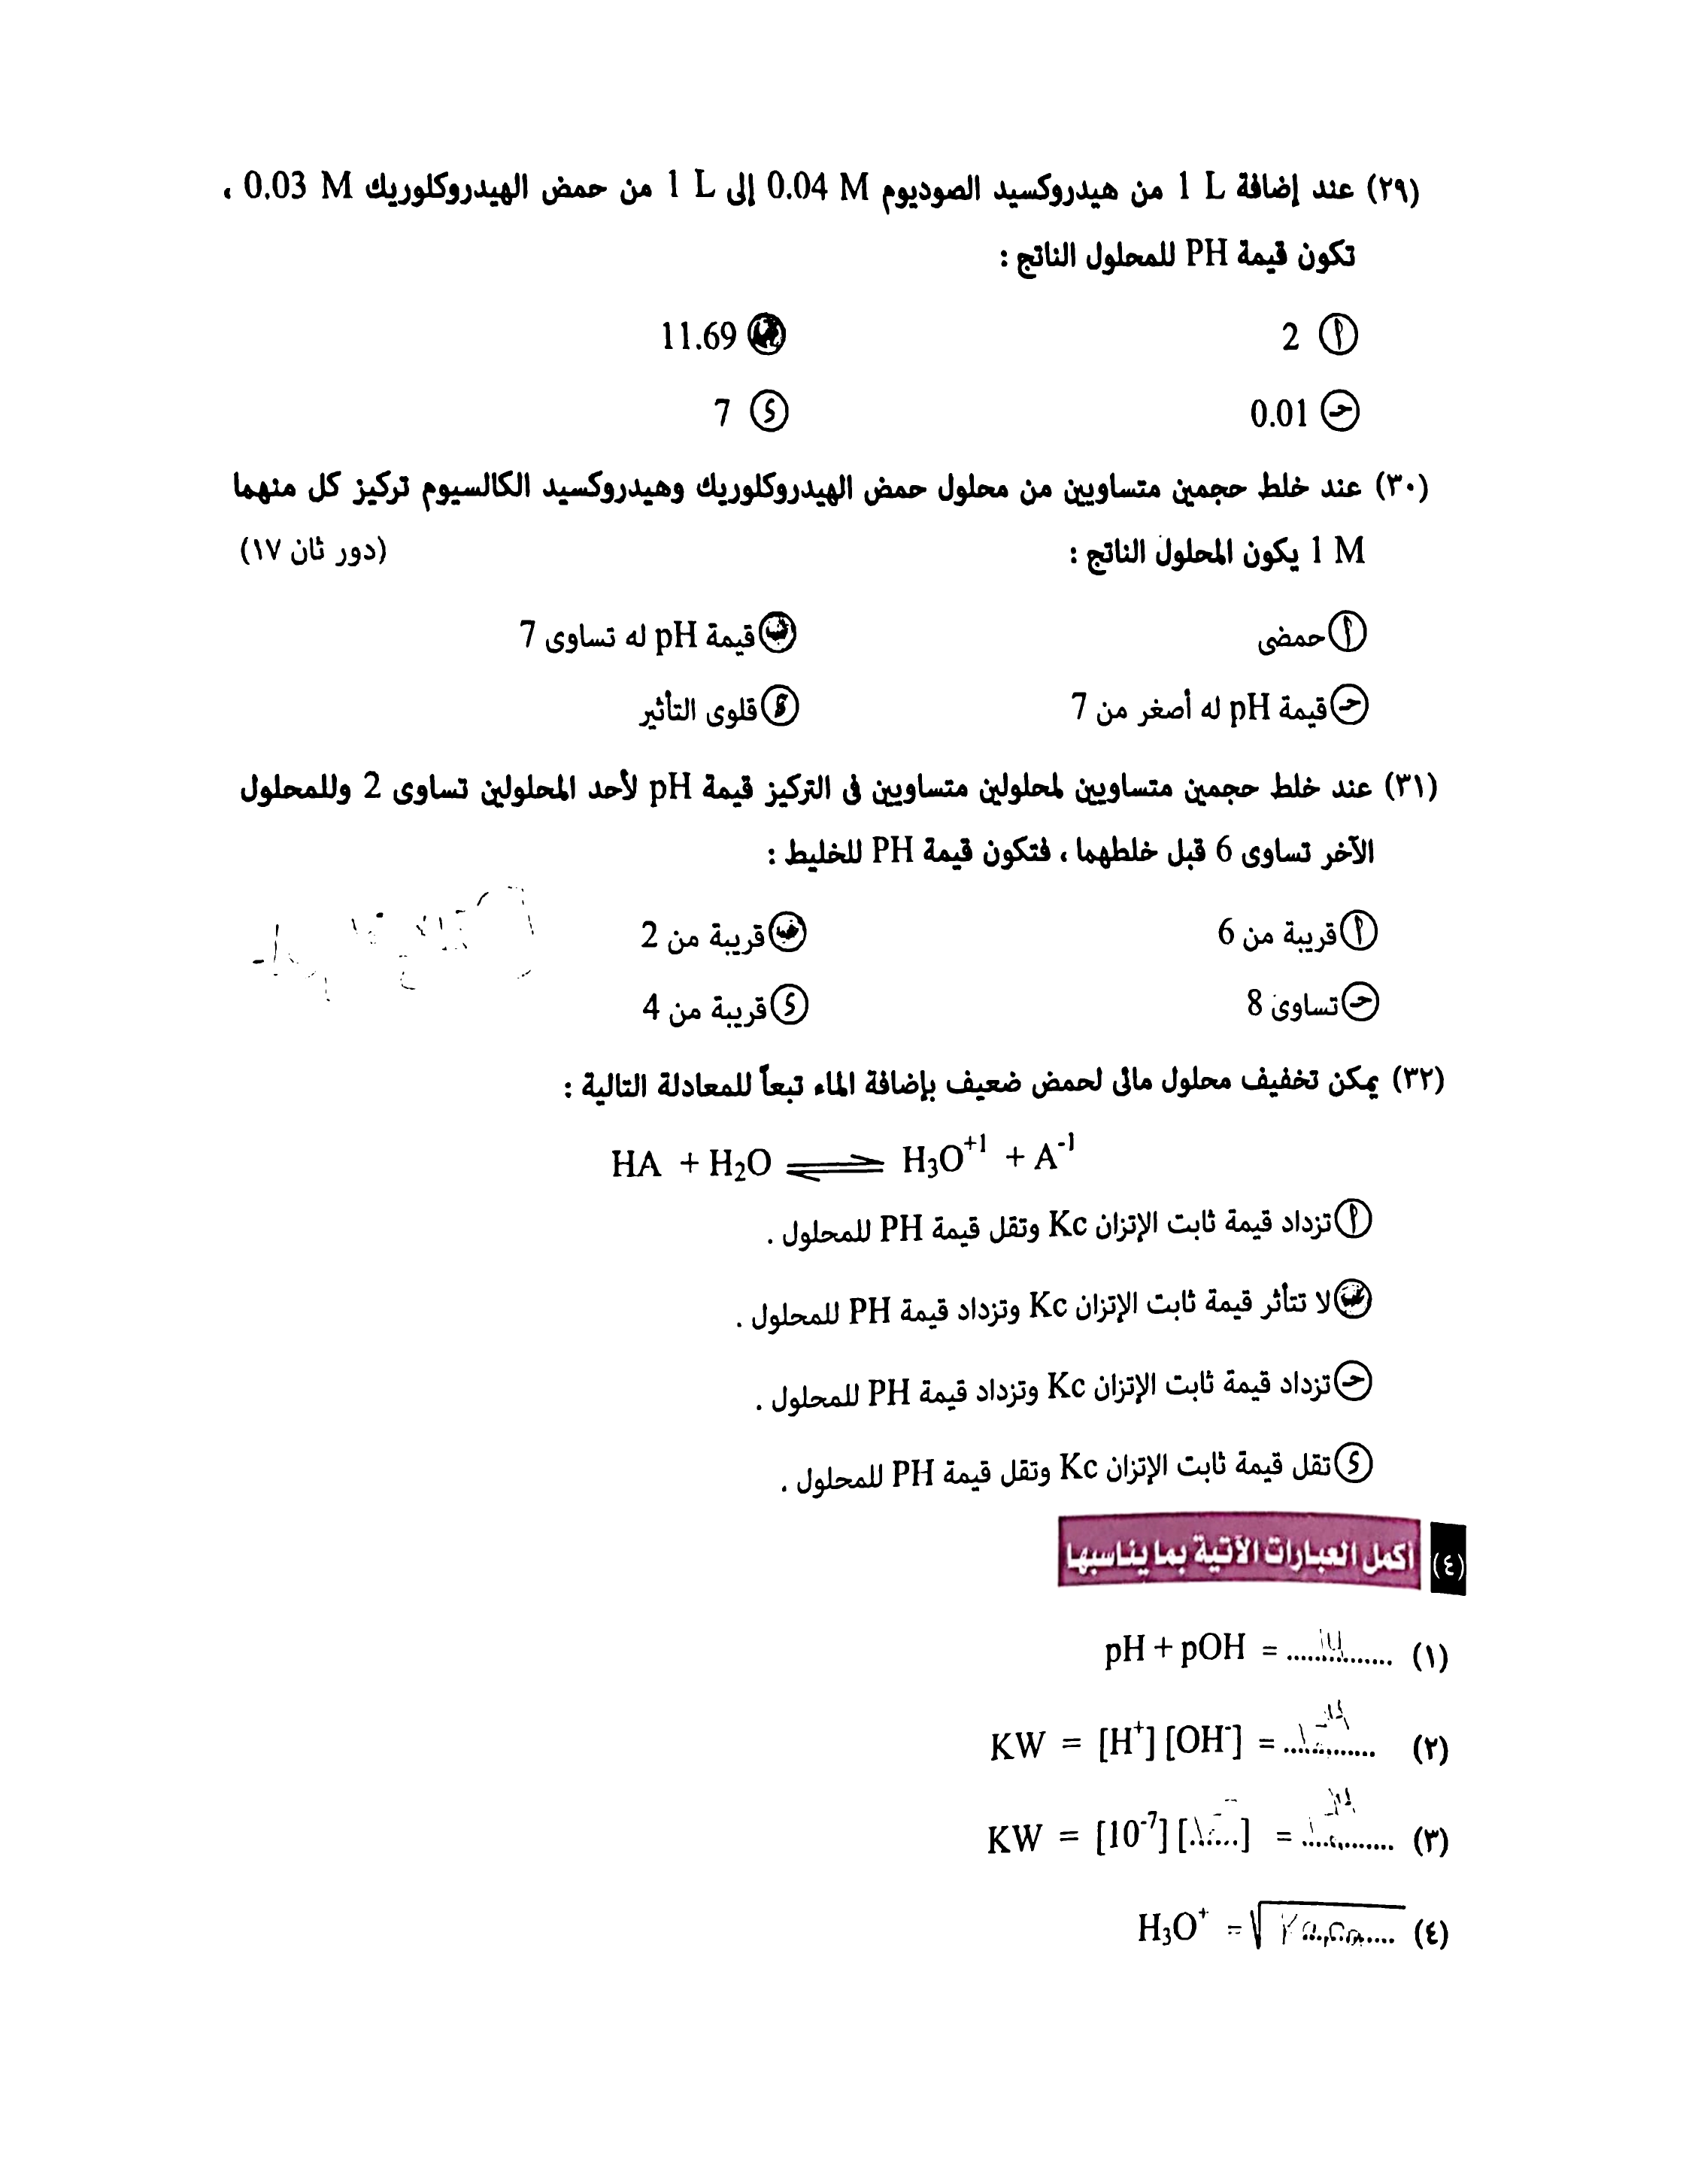 (٢٩) عند إضافة 1 L من هيدروكسيد الصوديوم 0.04 M إلى 1 L من حمض الهيدروكلوريك 0.03 M ،
تكون قيمة PH للمحلول الناتج :
أ 2 ب 11.69
حـ 0.01 د 7
(٣٠) عند خلط حجمين متساويين من محلول حمض الهيدروكلوريك وهيدروكسيد الكالسيوم تركيز كل منهما
1 M يكون المحلول الناتج : (دور ثان ١٧)
أ حمضى ب قيمة pH له تساوى 7
حـ قيمة pH له أصغر من 7 د قلوى التأثير
(٣١) عند خلط حجمين متساويين لمحلولين متساويين فى التركيز قيمة pH لأحد المحلولين تساوى 2 وللمحلول
الآخر تساوى 6 قبل خلطهما ، فتكون قيمة PH للخليط :
أ قريبة من 6 ب قريبة من 2
حـ تساوى 8 د قريبة من 4
(٣٢) يمكن تخفيف محلول مائى لحمض ضعيف بإضافة الماء تبعاً للمعادلة التالية :
HA + H₂O ⇌ H₃O⁺¹ + A⁻¹
أ تزداد قيمة ثابت الإتزان Kc وتقل قيمة PH للمحلول .
ب لا تتأثر قيمة ثابت الإتزان Kc وتزداد قيمة PH للمحلول .
حـ تزداد قيمة ثابت الإتزان Kc وتزداد قيمة PH للمحلول .
د تقل قيمة ثابت الإتزان Kc وتقل قيمة PH للمحلول .
(٤) أكمل العبارات الآتية بما يناسبها
(١) pH + pOH = ...............
(٢) KW = [H⁺] [OH⁻] = .............
(٣) KW = [10⁻⁷] [.......] = .............
(٤) H₃O⁺ = √ Ka.Ca....